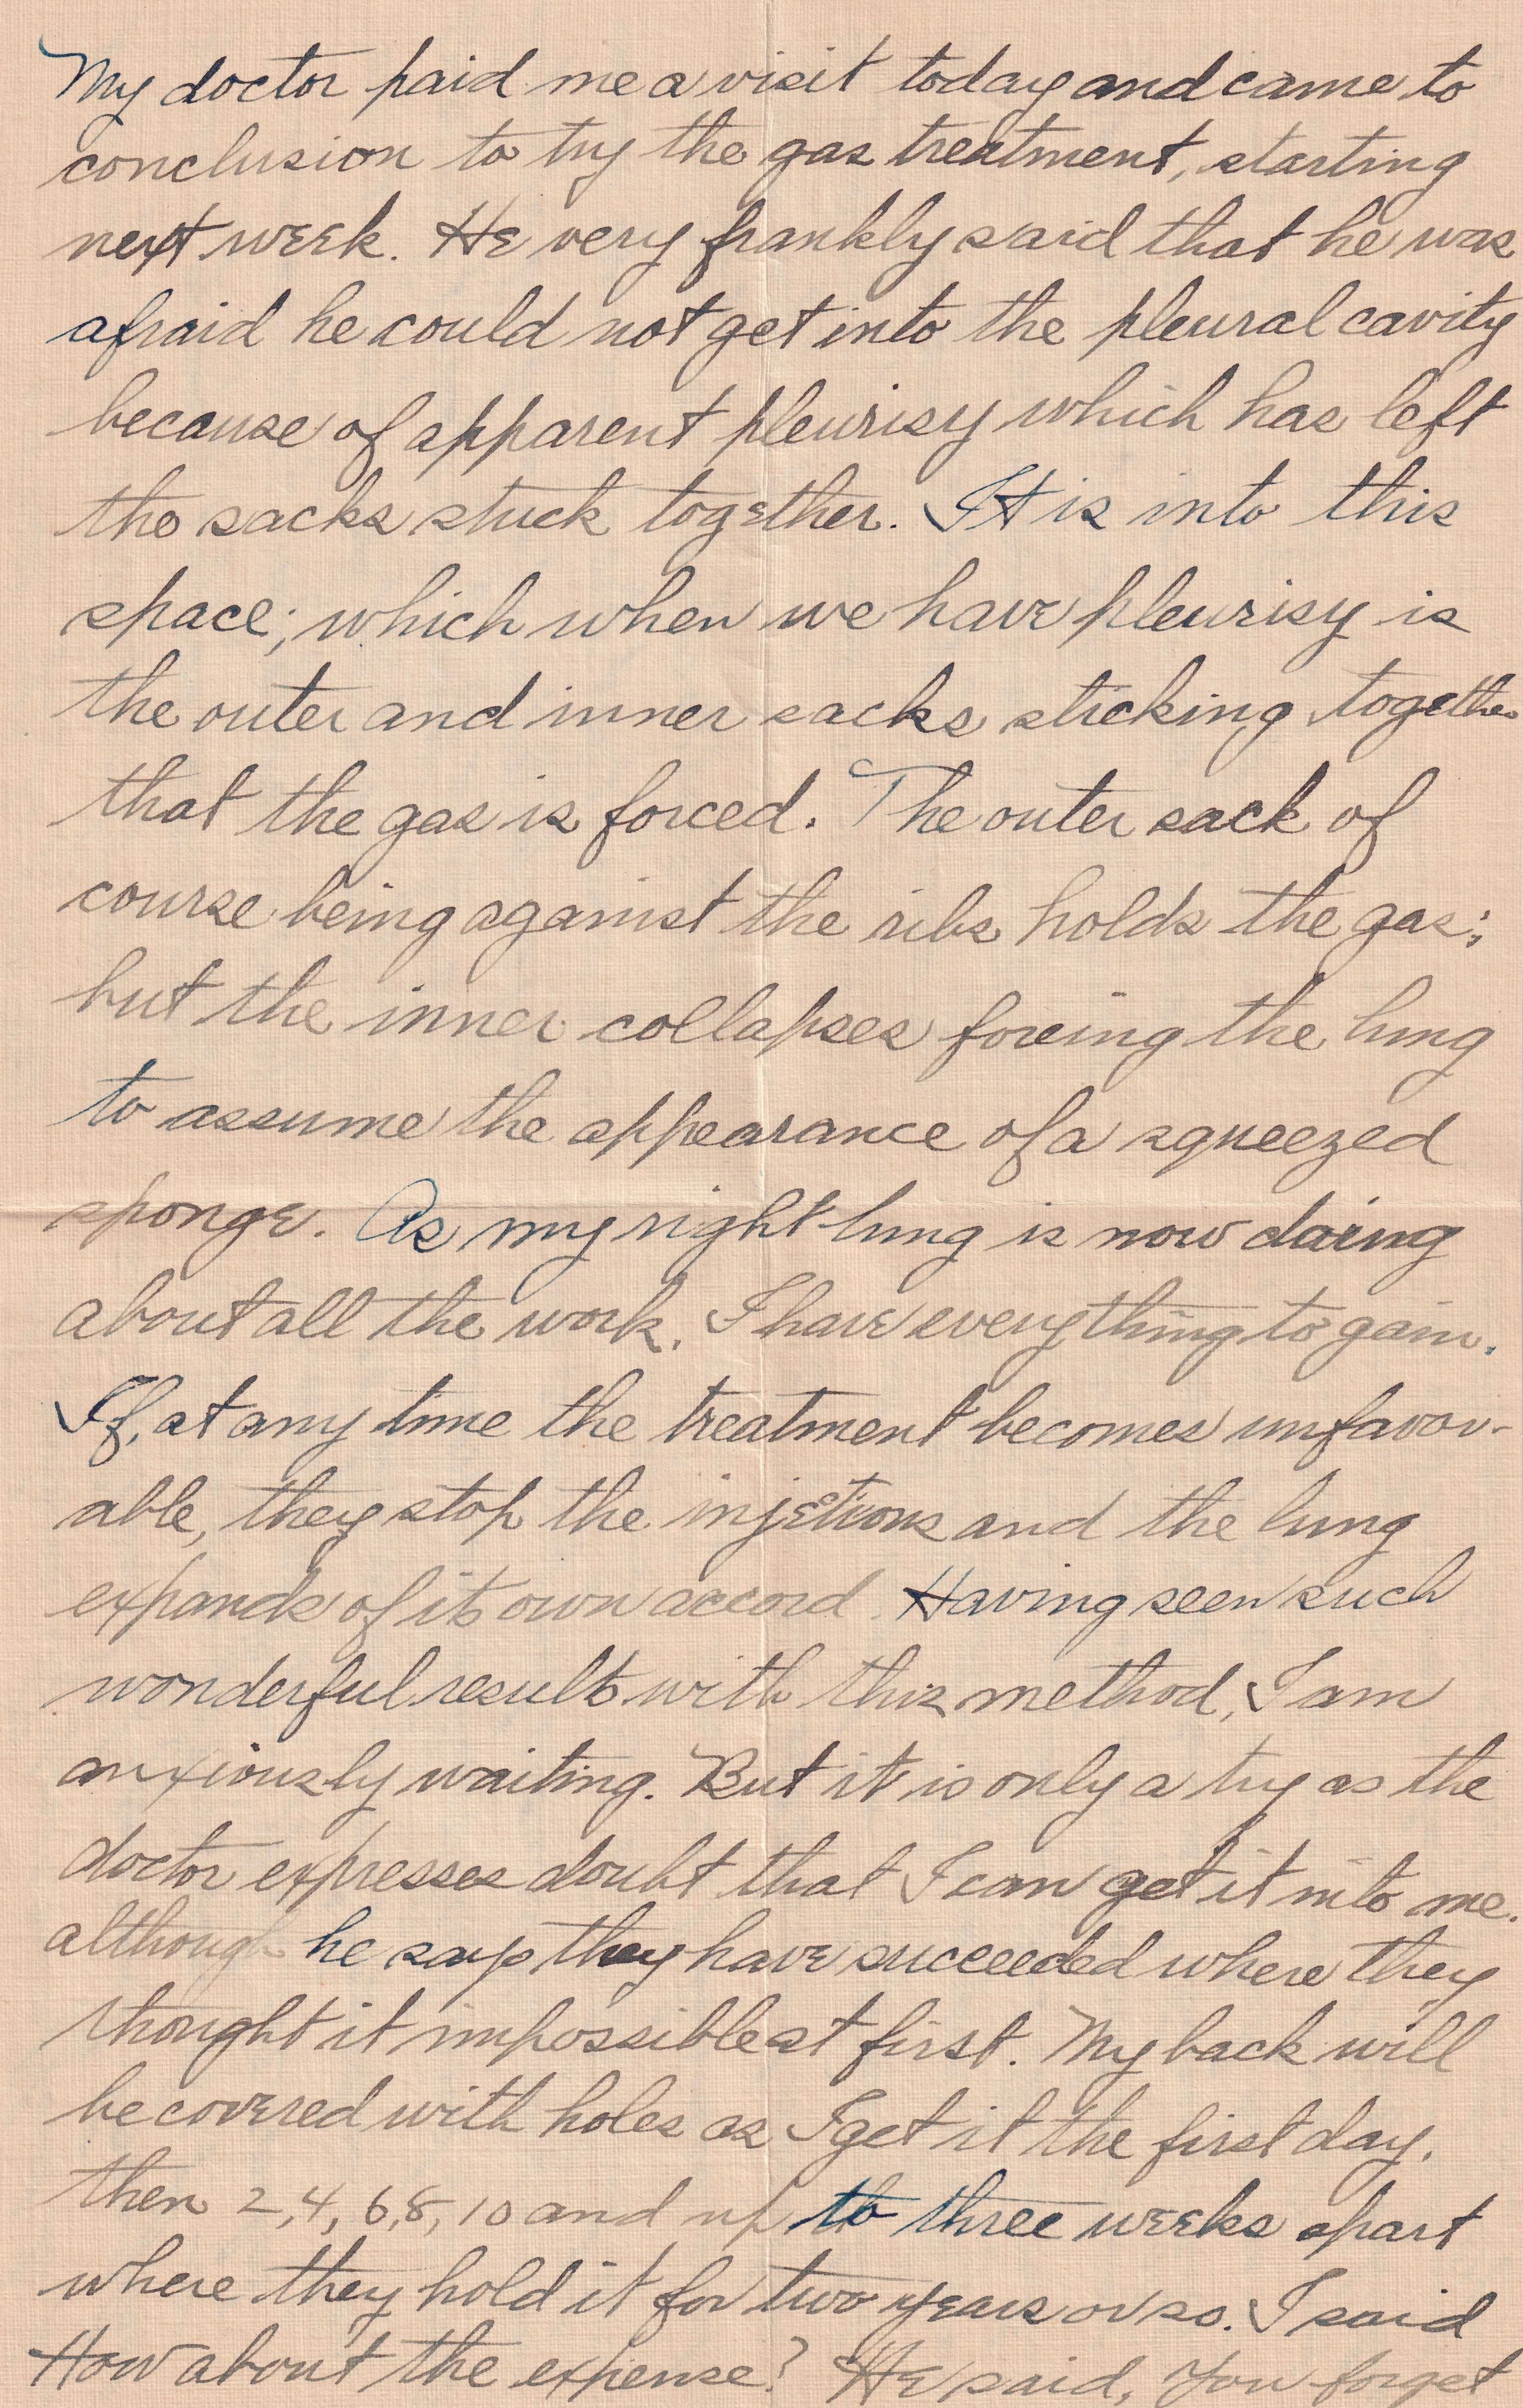 My doctor paid me a visit today and came to
conclusion to try the gas treatment, starting
next week. He very frankly said that he was
afraid he could not get into the pleural cavity
because of apparent pleurisy which has left
the sacks stuck together. It is into this
space; which when we have pleurisy is
the outer and inner sacks sticking together
that the gas is forced. The outer sack of
course being against the ribs holds the gas;
but the inner collapses forcing the lung
to assume the appearance of a squeezed
sponge. As my right lung is now doing
about all the work. I have everything to gain.
If, at any time the treatment becomes unfavor-
able, they stop the injetions and the lung
expands of its own accord. Having seen such
wonderful results with this method, I am
anxiously waiting. But it is only a try as the
doctor expresses doubt that I can get it into me.
although he says they have succeeded where they
thought it impossible at first. My back will
be covered with holes as I get it the first day.
then 2, 4, 6, 8, 10 and up to three weeks apart
where they hold it for two years or so. I said
How about the expense? He said, You forget